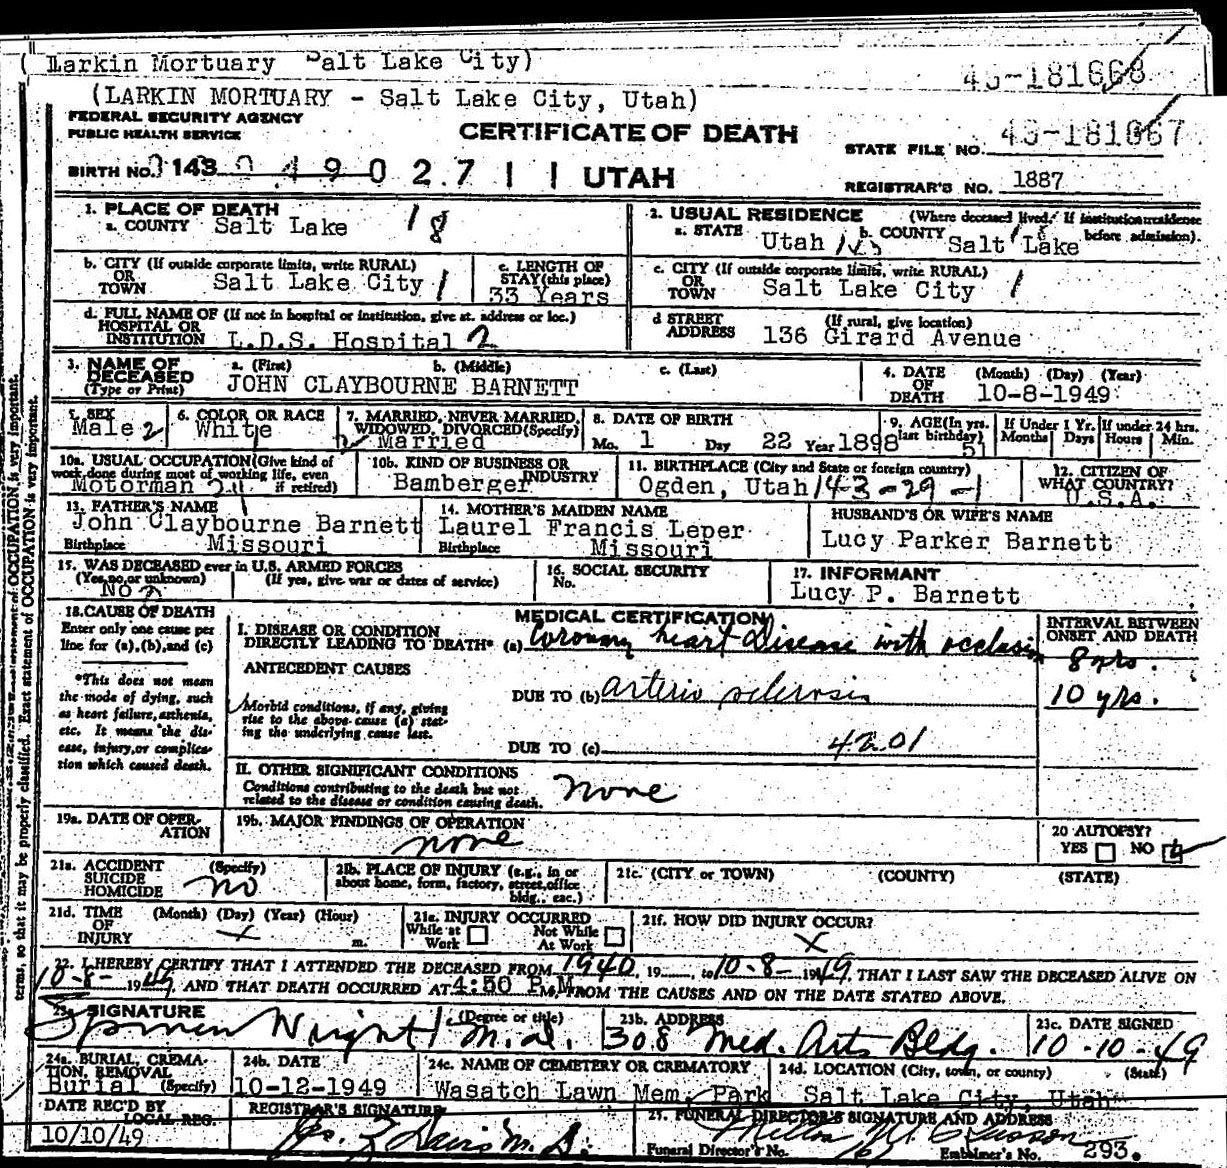 ( Larkin Mortuary Salt Lake City)
43-181668
(LARKIN MORTUARY - Salt Lake City, Utah)
FEDERAL SECURITY AGENCY
PUBLIC HEALTH SERVICE
CERTIFICATE OF DEATH
STATE FILE NO. 43-181667
BIRTH NO. 143 490271 UTAH
REGISTRAR'S NO. 1887
1. PLACE OF DEATH
a. COUNTY Salt Lake 18
2. USUAL RESIDENCE (Where deceased lived. If institution: residence before admission).
a. STATE Utah b. COUNTY Salt Lake
b. CITY (If outside corporate limits, write RURAL)
OR
TOWN Salt Lake City 1
c. LENGTH OF
STAY (this place)
33 Years
c. CITY (If outside corporate limits, write RURAL)
OR
TOWN Salt Lake City 1
d. FULL NAME OF (If not in hospital or institution, give st. address or loc.)
HOSPITAL OR
INSTITUTION L.D.S. Hospital 2
d STREET
ADDRESS (If rural, give location)
136 Girard Avenue
3. NAME OF
DECEASED
(Type or Print)
a. (First) b. (Middle) c. (Last)
JOHN CLAYBOURNE BARNETT
4. DATE
OF
DEATH
(Month) (Day) (Year)
10-8-1949
5. SEX
Male 2
6. COLOR OR RACE
White
7. MARRIED, NEVER MARRIED,
WIDOWED, DIVORCED (Specify)
Married
8. DATE OF BIRTH
Mo. 1 Day 22 Year 1898
9. AGE (In yrs.
last birthday)
51
If Under 1 Yr.
Months Days
If under 24 hrs.
Hours Min.
10a. USUAL OCCUPATION (Give kind of
work done during most of working life, even
if retired)
Motorman
10b. KIND OF BUSINESS OR
INDUSTRY
Bamberger
11. BIRTHPLACE (City and State or foreign country)
Ogden, Utah 143-29-1
12. CITIZEN OF
WHAT COUNTRY?
U.S.A.
13. FATHER'S NAME
John Claybourne Barnett
Birthplace Missouri
14. MOTHER'S MAIDEN NAME
Laurel Francis Leper
Birthplace Missouri
HUSBAND'S OR WIFE'S NAME
Lucy Parker Barnett
15. WAS DECEASED ever in U.S. ARMED FORCES
(Yes, no, or unknown) (If yes, give war or dates of service)
No 2
16. SOCIAL SECURITY
No.
17. INFORMANT
Lucy P. Barnett
18. CAUSE OF DEATH
Enter only one cause per
line for (a), (b), and (c)
*This does not mean
the mode of dying, such
as heart failure, asthenia,
etc. It means the dis-
ease, injury, or complica-
tion which caused death.
MEDICAL CERTIFICATION
I. DISEASE OR CONDITION
DIRECTLY LEADING TO DEATH* (a) Coronary heart Disease with occlusion
ANTECEDENT CAUSES
Morbid conditions, if any, giving
rise to the above cause (a) stat-
ing the underlying cause last.
DUE TO (b) arterio sclerosis
DUE TO (c) 4201
INTERVAL BETWEEN
ONSET AND DEATH
8 yrs.
10 yrs.
II. OTHER SIGNIFICANT CONDITIONS
Conditions contributing to the death but not
related to the disease or condition causing death.
none
19a. DATE OF OPER-
ATION
19b. MAJOR FINDINGS OF OPERATION
none
20 AUTOPSY?
YES NO
21a. ACCIDENT
SUICIDE
HOMICIDE
(Specify)
no
21b. PLACE OF INJURY (e.g., in or
about home, form, factory, street, office
bldg., etc.)
21c. (CITY or TOWN) (COUNTY) (STATE)
21d. TIME
OF
INJURY
(Month) (Day) (Year) (Hour)
m.
21e. INJURY OCCURRED
While at
Work
Not While
At Work
21f. HOW DID INJURY OCCUR?
X
22. I HEREBY CERTIFY THAT I ATTENDED THE DECEASED FROM 1940, 19___, to 10-8- 1949, THAT I LAST SAW THE DECEASED ALIVE ON
10-8- 1949, AND THAT DEATH OCCURRED AT 4:50 P.M. M., FROM THE CAUSES AND ON THE DATE STATED ABOVE.
23a. SIGNATURE (Degree or title)
Wright M.D.
23b. ADDRESS
308 Med. Arts Bldg.
23c. DATE SIGNED
10-10-49
24a. BURIAL, CREMA-
TION, REMOVAL
Burial (Specify)
24b. DATE
10-12-1949
24c. NAME OF CEMETERY OR CREMATORY
Wasatch Lawn Mem. Park
24d. LOCATION (City, town, or county) (State)
Salt Lake City, Utah
DATE REC'D BY
LOCAL REG.
10/10/49
REGISTRAR'S SIGNATURE
M.D.
25. FUNERAL DIRECTOR'S SIGNATURE AND ADDRESS
Funeral Director's No. Embalmer's No. 293.
terms, so that it may be properly classified. Exact statement of OCCUPATION is very important.